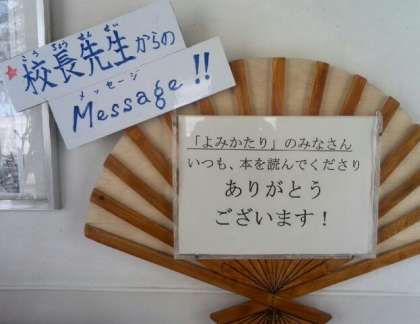 こうちょうせんせい
★校長先生からの
メッセージ
Message!!
「よみかたり」のみなさん
いつも、本を読んでくださり
ありがとう
ございます！